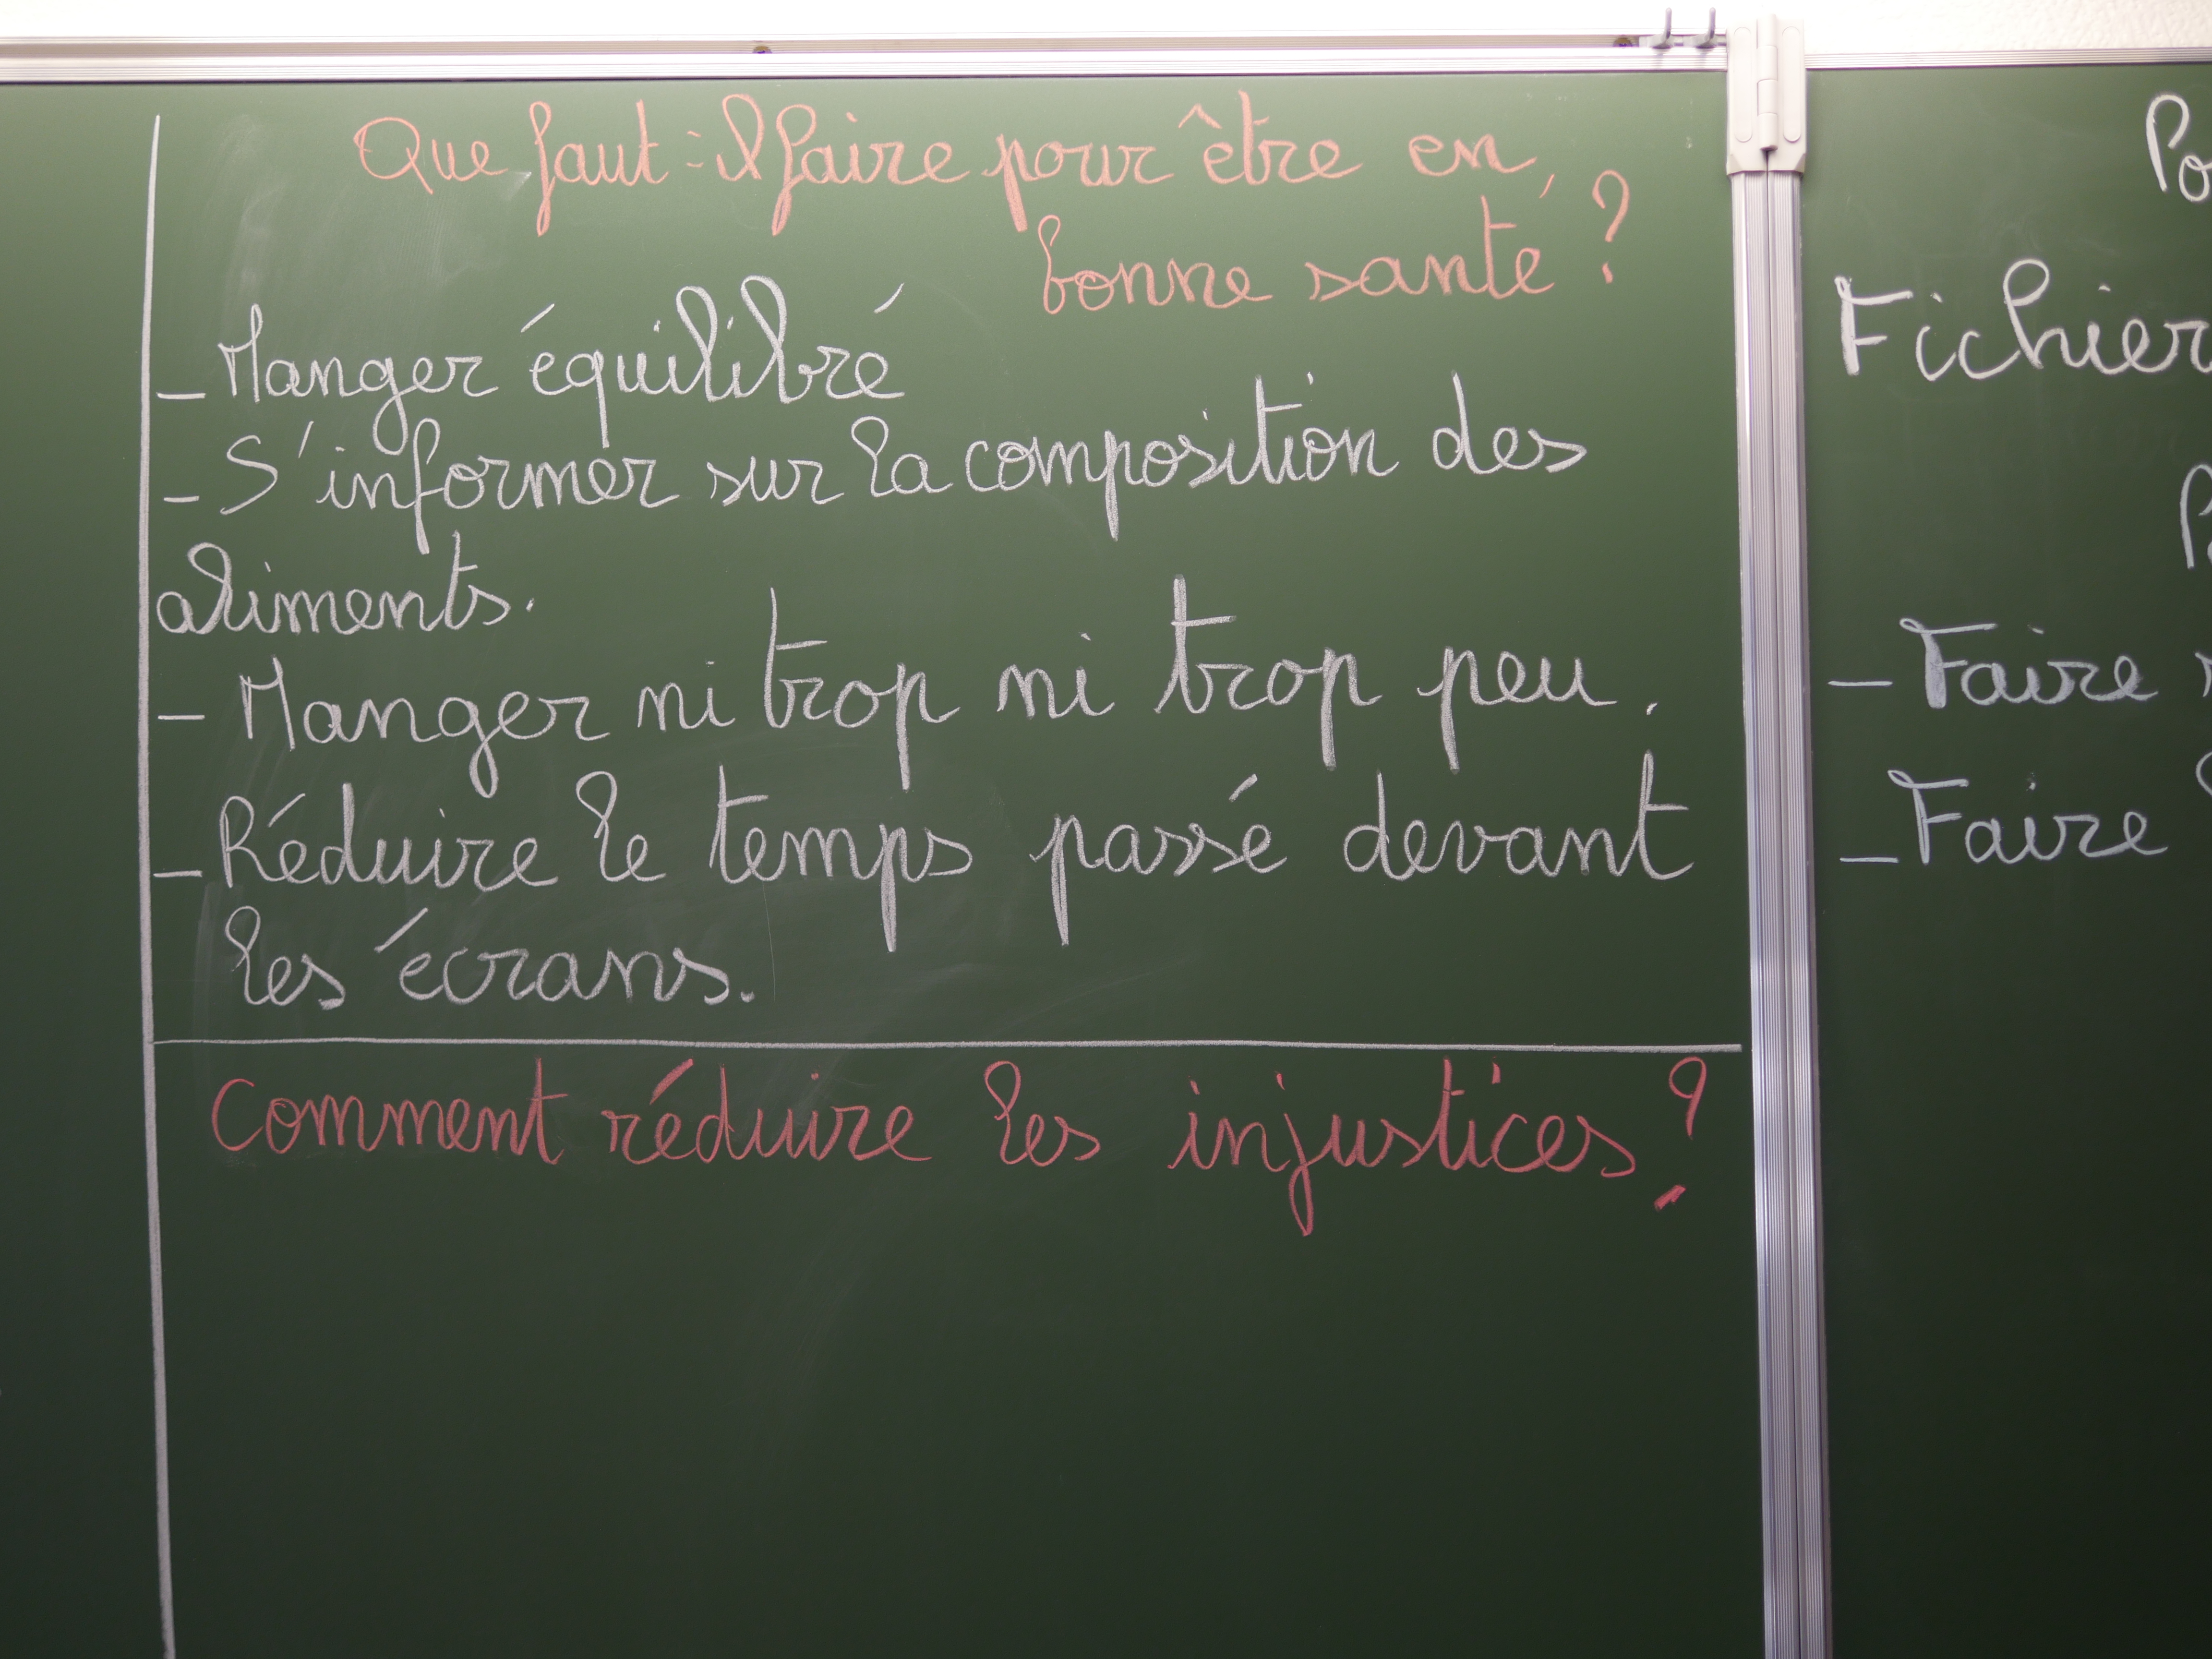 Que faut-il faire pour être en
bonne santé ?
- Manger équilibré
- S'informer sur la composition des
aliments.
- Manger ni trop ni trop peu.
- Réduire le temps passé devant
les écrans.
Comment réduire les injustices ?
Fichier
- Faire
- Faire